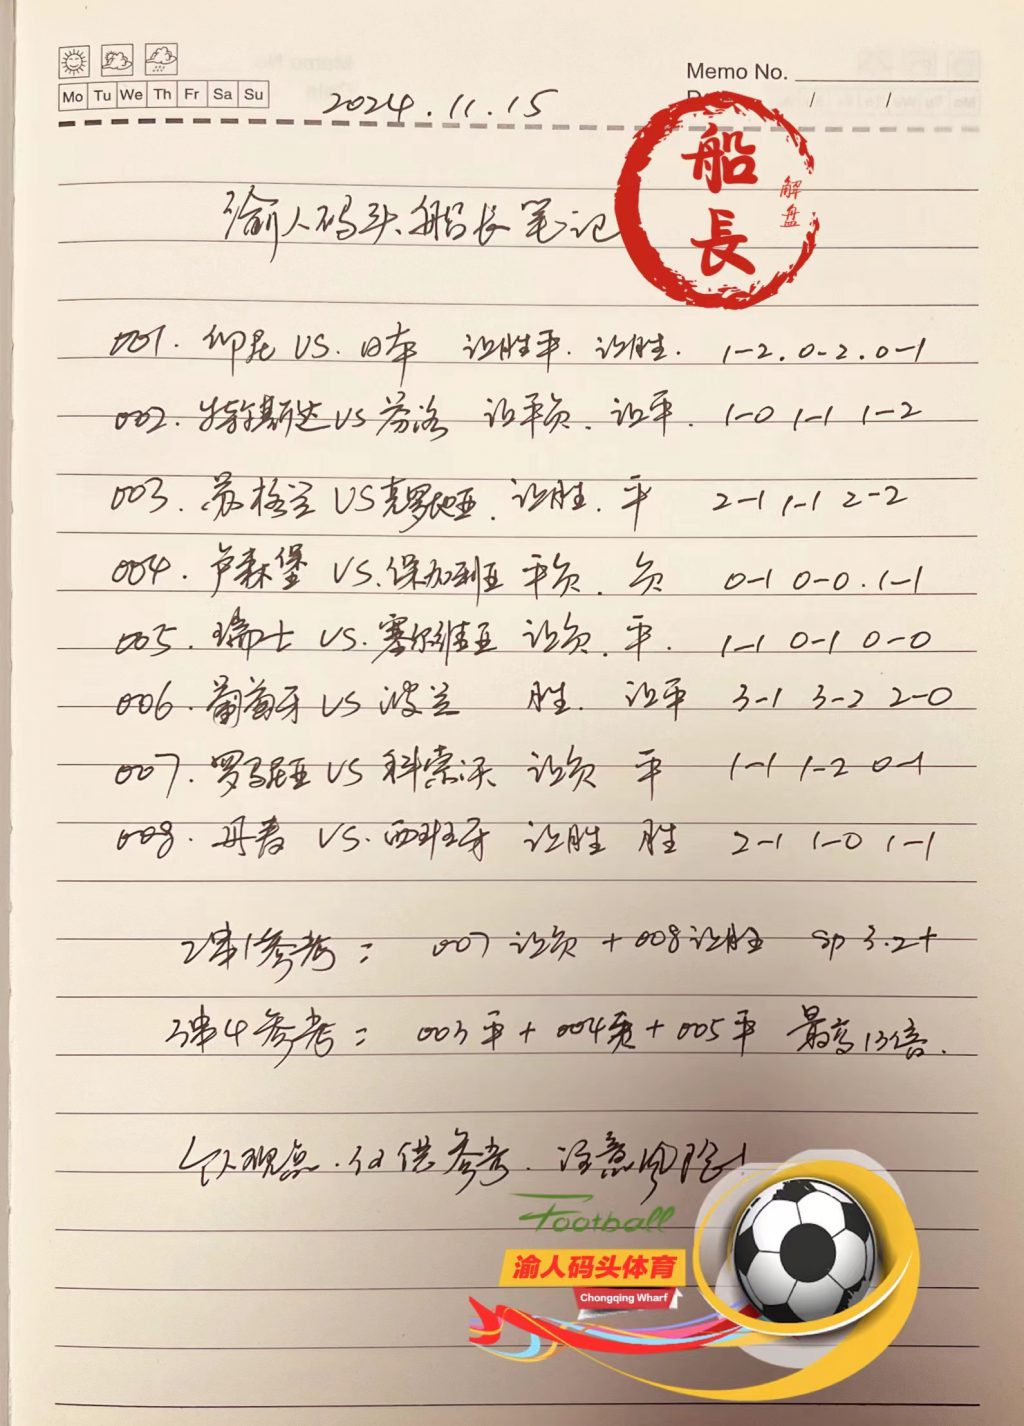 Memo No.
Mo Tu We Th Fr Sa Su
/ /
2024.11.15
船長
解盘
渝人码头船长笔记
001. 印尼 VS. 日本 让胜平. 让胜. 1-2. 0-2. 0-1
002. 特斯达 VS 芬洛 让平负. 让平. 1-0 1-1 1-2
003. 苏格兰 VS 克罗地亚. 让胜. 平 2-1 1-1 2-2
004. 卢森堡 VS. 保加利亚 平负. 负 0-1 0-0. 1-1
005. 瑞士 VS. 塞尔维亚 让负. 平. 1-1 0-1 0-0
006. 葡萄牙 VS 波兰 胜. 让平 3-1 3-2 2-0
007. 罗马尼亚 VS 科索沃 让负 平 1-1 1-2 0-1
008. 丹麦 VS. 西班牙 让胜 胜 2-1 1-0 1-1
2串1参考: 007让负+008让胜 sp 3.2+
3串4参考: 003平+004负+005平 最高13倍.
个人观点.仅供参考.注意风险!
Football
渝人码头体育
Chongqing Wharf